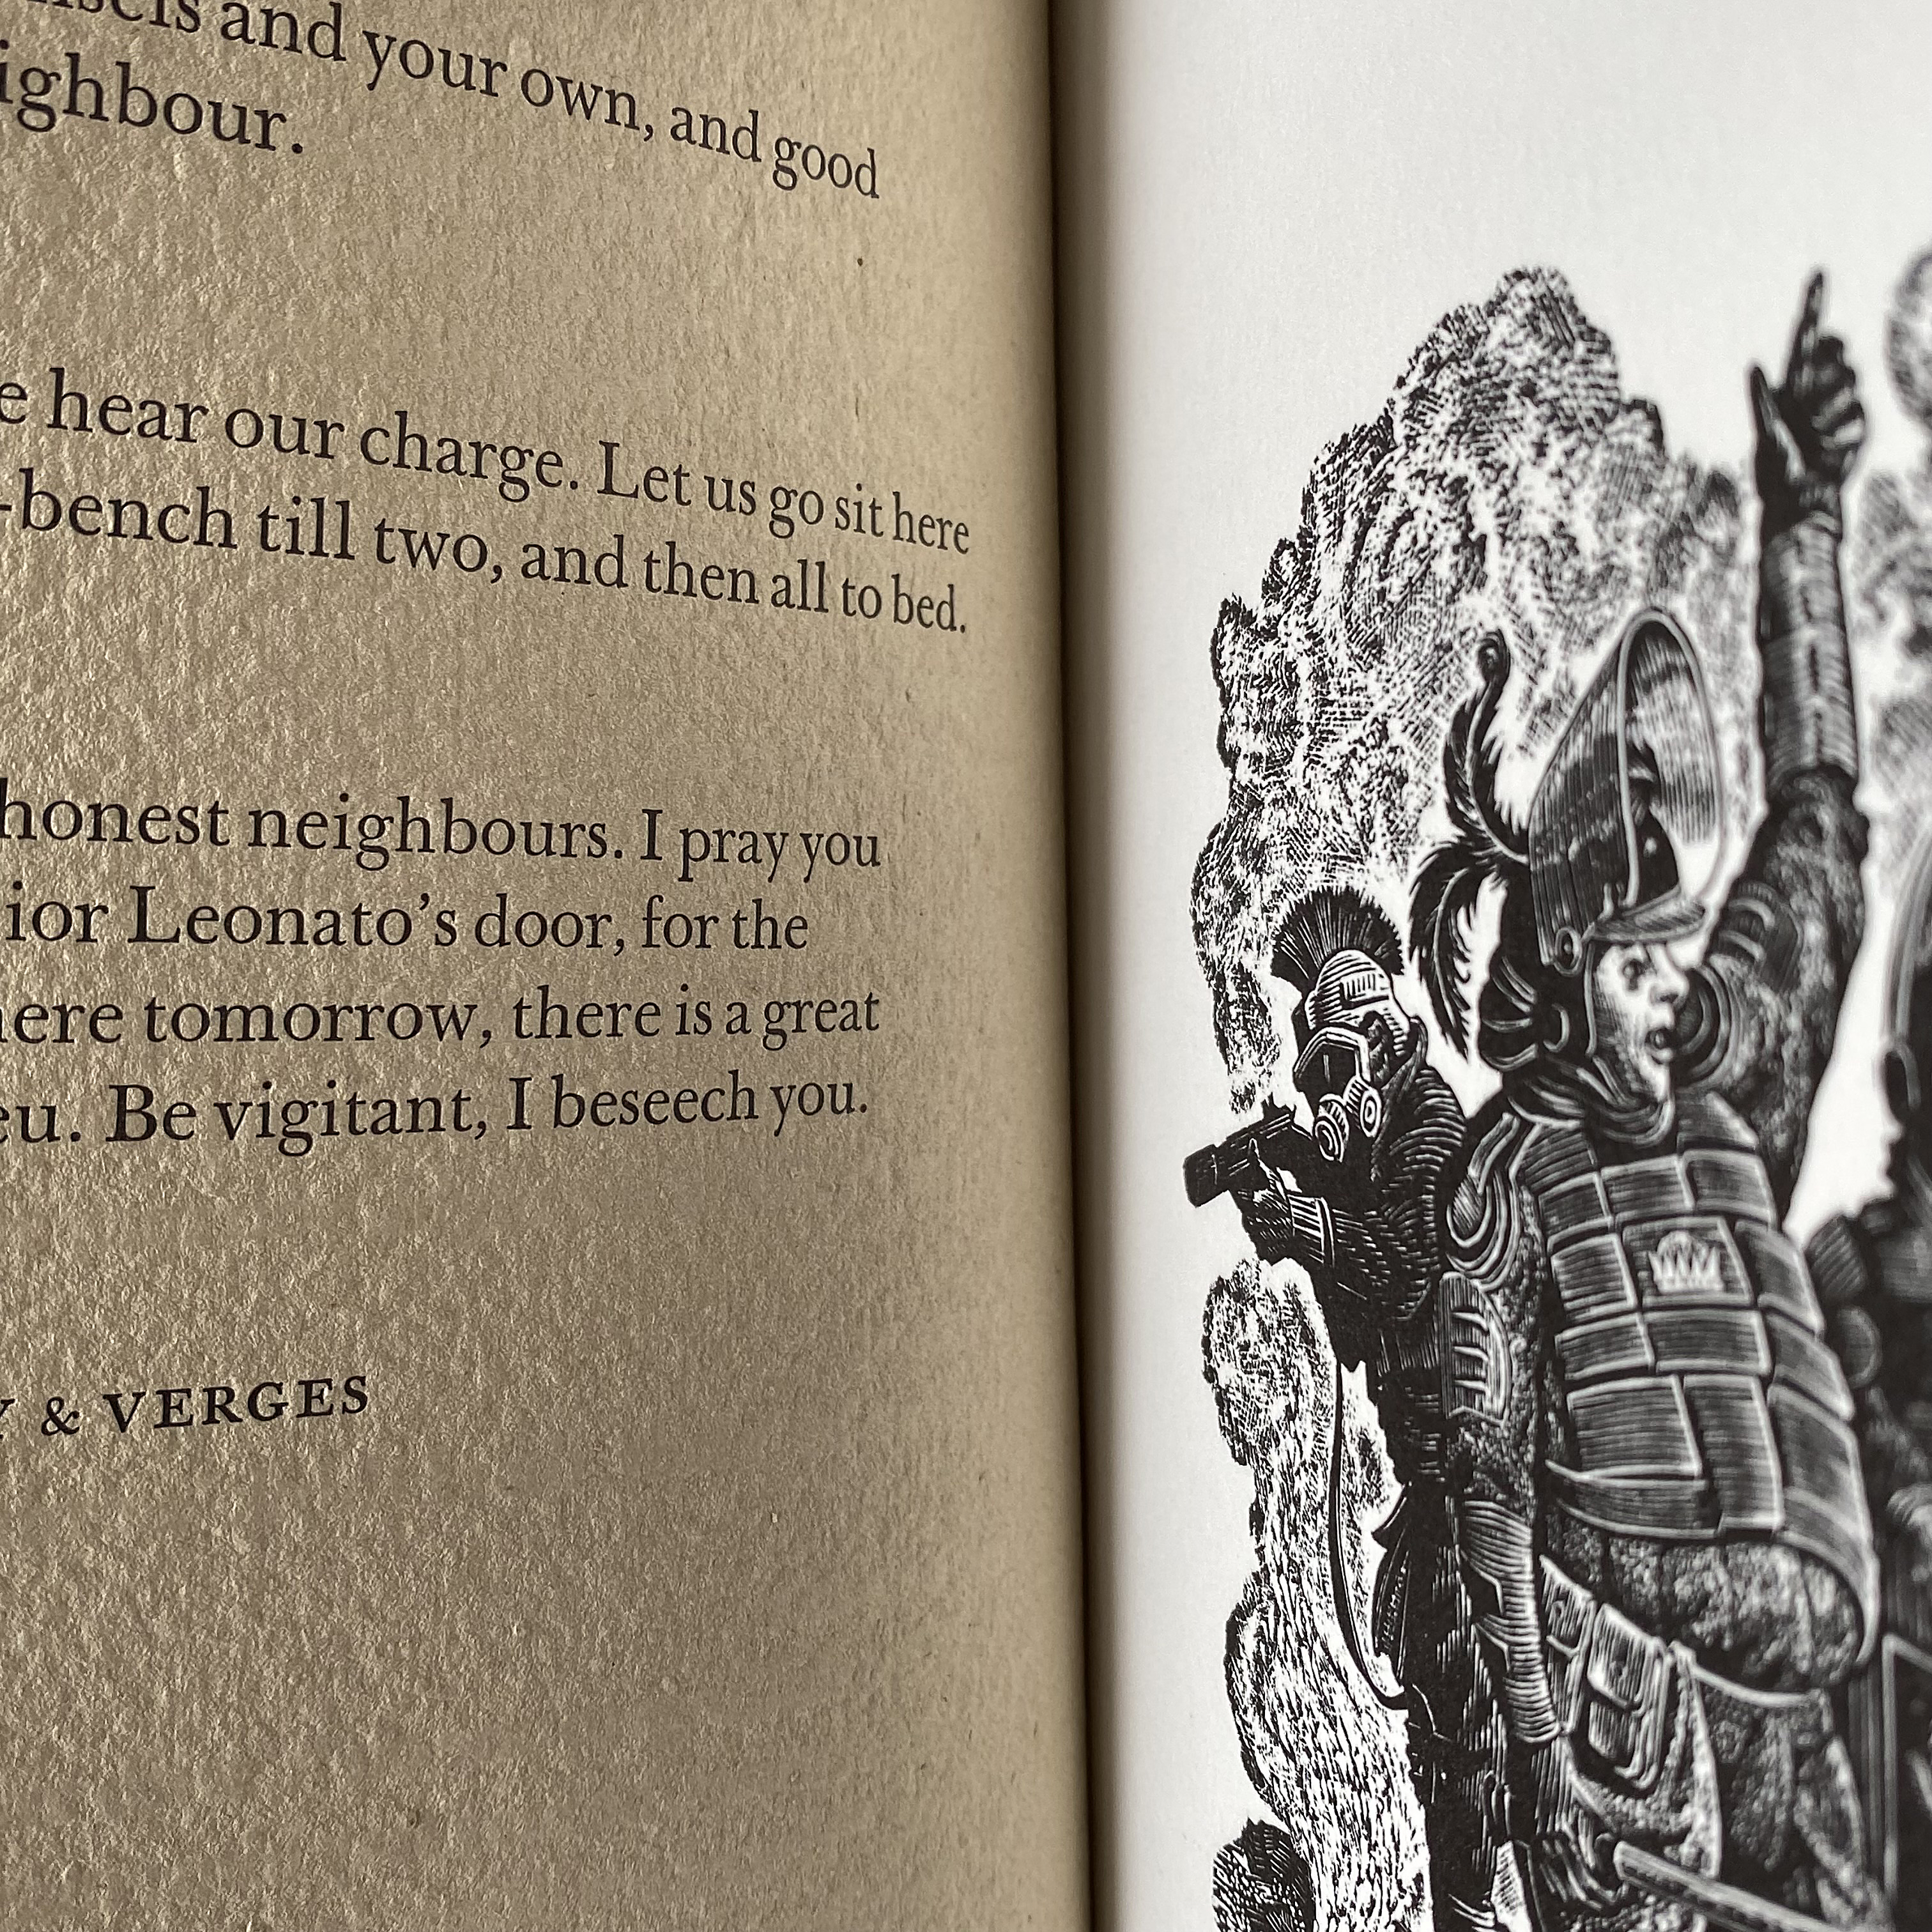 and your own, and good
ighbour.
e hear our charge. Let us go sit here
-bench till two, and then all to bed.
honest neighbours. I pray you
ior Leonato's door, for the
ere tomorrow, there is a great
eu. Be vigitant, I beseech you.
Y & VERGES